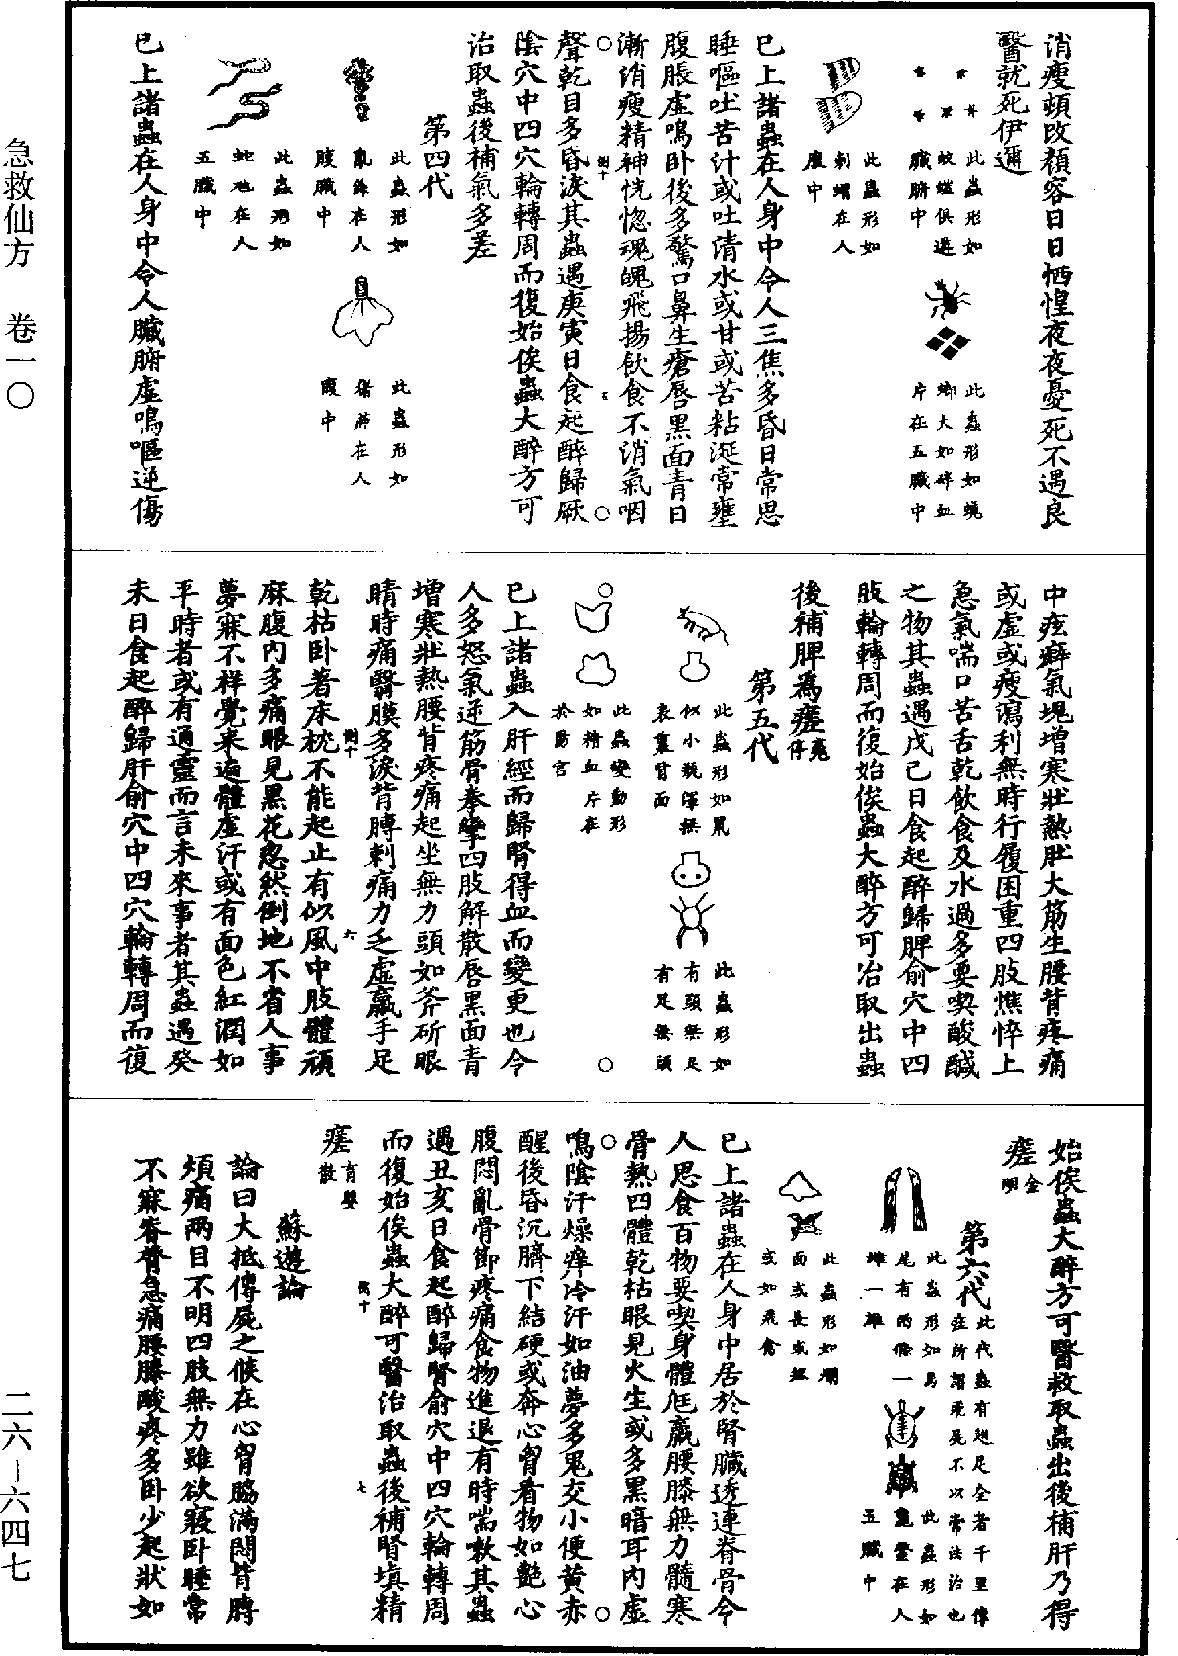 急救仙方　卷一〇
二六－六四七
消瘦頓改顏容日日恓惶夜夜憂死不遇良
醫就死伊邇
此蟲形如
蚊蟻俱遶
臟腑中
此蟲形如蜣
螂大如碎血
片在五臟中
此蟲形如
刺蝟在人
腹中
已上諸蟲在人身中令人三焦多昏日常思
睡嘔吐苦汁或吐清水或甘或苦粘涎常壅
腹脹虛鳴卧後多驚口鼻生瘡唇黑面青日
漸消瘦精神恍惚魂魄飛揚飲食不消氣咽
聲乾目多昏淚其蟲遇庚寅日食起醉歸厥
陰穴中四穴輪轉周而復始俟蟲大醉方可
治取蟲後補氣多差
第四代
此蟲形如
亂絲在人
腹臟中
此蟲形如
猪肝在人
腹中
此蟲形如
蛇虺在人
五臟中
已上諸蟲在人身中令人臟腑虛鳴嘔逆傷
中痃癖氣塊增寒壯熱肚大筋生腰背疼痛
或虛或瘦瀉利無時行履困重四肢憔悴上
急氣喘口苦舌乾飲食及水過多要喫酸鹹
之物其蟲遇戊己日食起醉歸脾俞穴中四
肢輪轉周而復始俟蟲大醉方可治取出蟲
後補脾爲瘥
第五代
此蟲形如鼠
似小瓶渾無
表裏背面
此蟲形如
有頭無足
有足無頭
此蟲變動形
如精血片在
於陽宮
已上諸蟲入肝經而歸腎得血而變更也令
人多怒氣逆筋骨拳攣四肢解散唇黑面青
增寒壯熱腰背疼痛起坐無力頭如斧斫眼
睛時痛翳膜多淚背膊刺痛力乏虛羸手足
乾枯卧著床枕不能起止有似風中肢體頑
麻腹內多痛眼見黑花忽然倒地不省人事
夢寐不祥覺來遍體虛汗或有面色紅潤如
平時者或有通靈而言未來事者其蟲遇癸
未日食起醉歸肝俞穴中四穴輪轉周而復
始俟蟲大醉方可醫救取蟲出後補肝乃得
瘥
第六代
此代蟲有翅足全者千里傳
症所謂飛尸不以常法治也
此蟲形如馬
尾有兩條一
雄一雌
此蟲形如
鼈鱉在人
五臟中
此蟲形如爛
面或長或短
或如飛禽
已上諸蟲在人身中居於腎臟透連脊骨令
人思食百物要喫身體尫羸腰膝無力髓寒
骨熱四體乾枯眼見火生或多黑暗耳內虛
鳴陰汗燥痒冷汗如油夢多鬼交小便黃赤
醒後昏沉臍下結硬或奔心胷看物如艷心
腹悶亂骨節疼痛食物進退有時喘嗽其蟲
遇丑亥日食起醉歸腎俞穴中四穴輪轉周
而復始俟蟲大醉可醫治取蟲後補腎填精
瘥
蘇遊論
論曰大抵傳屍之候在心胷脇滿悶背膊
煩痛兩目不明四肢無力雖欲寢卧睡常
不寐脊膂急痛腰膝酸疼多卧少起狀如